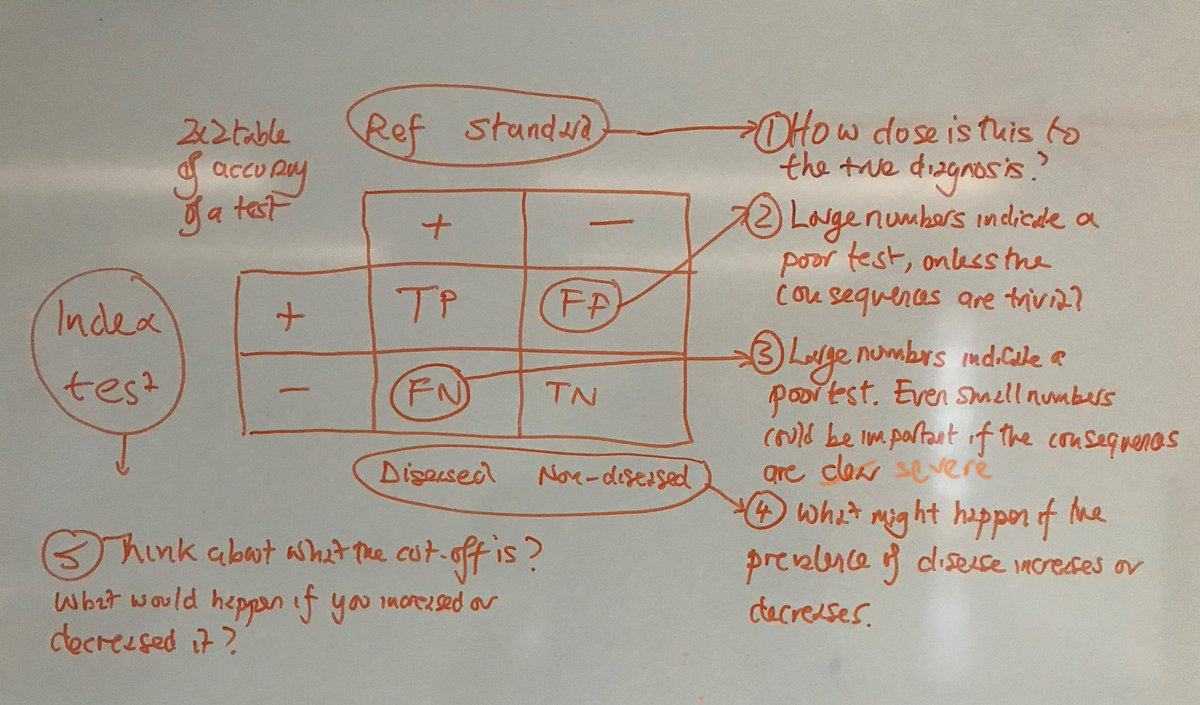 2x2 table
of accuracy
of a test
Ref Standard
① How close is this to
the true diagnosis?
+ −
② Large numbers indicate a
poor test, unless the
consequences are trivial
Index
test
+ TP FP
− FN TN
③ Large numbers indicate a
poor test. Even small numbers
could be important if the consequences
are severe
Diseased Non-diseased
④ What might happen if the
prevalence of disease increases or
decreases.
⑤ Think about what the cut-off is?
What would happen if you increased or
decreased it?